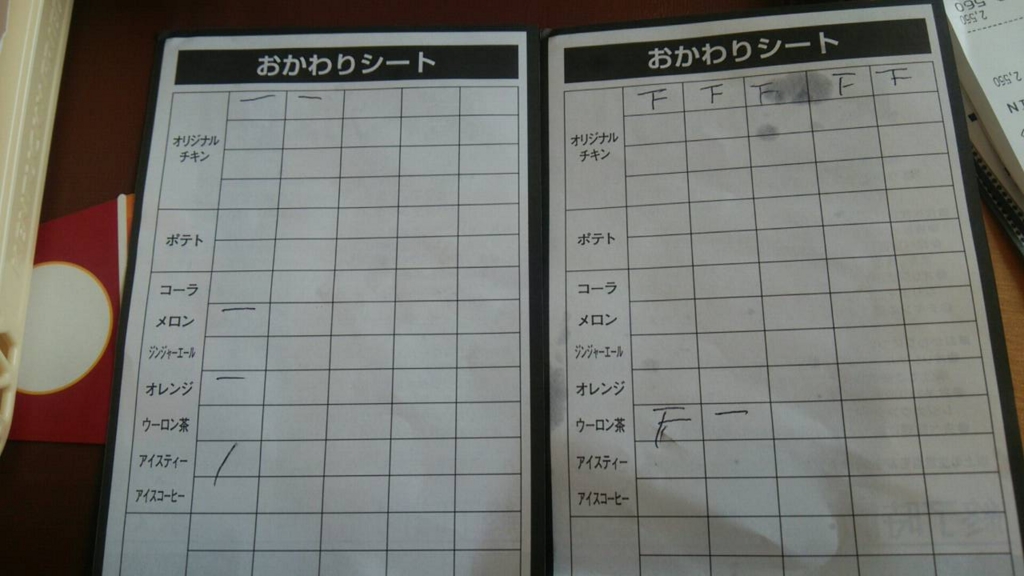 おかわりシート
オリジナル
チキン
ポテト
コーラ
メロン
ジンジャーエール
オレンジ
ウーロン茶
アイスティー
アイスコーヒー
おかわりシート
オリジナル
チキン
ポテト
コーラ
メロン
ジンジャーエール
オレンジ
ウーロン茶
アイスティー
アイスコーヒー
2,550
2,550